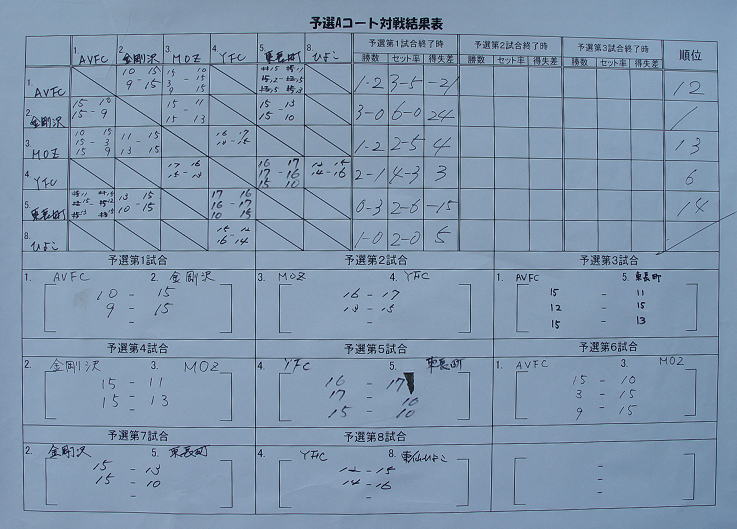 予選Aコート対戦結果表
1. AVFC 2. 金剛沢 3. MOZ 4. YFC 5. 東長町 8. ひよこ 予選第1試合終了時 予選第2試合終了時 予選第3試合終了時 順位
勝数 セット率 得失差 勝数 セット率 得失差 勝数 セット率 得失差
1. AVFC 10 15 9-15 15 10 3-15 9 15 1-2 3-5 -21 12
2. 金剛沢 15 10 15-9 15-11 15-13 15-13 15 10 3-0 6-0 24 1
3. MOZ 10 15 15-3 15 9 11-15 13-15 16-17 1-2 2-5 4 13
4. YFC 17 16 15-13 16 17 17-16 15 10 12 15 14-16 2-1 4-3 3 6
5. 東長町 13 15 10-15 17 16 16-17 10 15 0-3 2-6 -15 14
8. ひよこ 15 12 16-14 1-0 2-0 5
予選第1試合 予選第2試合 予選第3試合
1. AVFC 2. 金剛沢 3. MOZ 4. YFC 1. AVFC 5. 東長町
10 - 15 16 - 17 15 - 11
9 - 15 12 - 15
- - 15 13
予選第4試合 予選第5試合 予選第6試合
2. 金剛沢 3. MOZ 4. YFC 5. 東長町 1. AVFC 3. MOZ
15 - 11 16 - 17 15 - 10
15 - 13 17 - 16 3 - 15
- 15 - 10 9 - 15
予選第7試合 予選第8試合
2. 金剛沢 5. 東長町 4. YFC 8. 東仙ひよこ
15 - 13 12 - 15 -
15 - 10 14 - 16 -
- - -